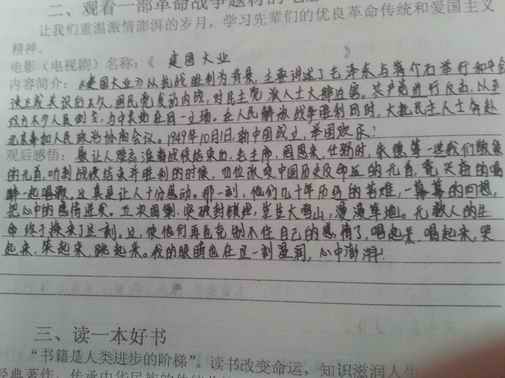 二、观看一部革命战争题材的电
让我们重温激情澎湃的岁月，学习先辈们的优良革命传统和爱国主义
精神。
电影（电视剧）名称：《 建国大业 》
内容简介：《建国大业》以抗战胜利为背景，主要讲述了毛泽东与蒋介石举行和平会
谈达成共识后不久，国民党发动内战，对民主党派人士大肆迫害，共产党进行反击，从
一立场。在人民解放战争胜利同时，大批民主人士奔赴
北京参加人民政治协商会议。1949年10月1日，新中国成立，举国欢乐！
观后感悟：最让人难忘的是战役结束后，毛主席，周恩来，任弼时，朱德等一些我们敬爱
的元首，听到战役结束并胜利的时候，四位改变中国历史及命运的元首，竟兴奋的喝
醉一起唱歌，这真是让人十分感动。那一刻，他们几十年历的苦难，一幕幕的回想，
把心中的感情迸发。
命终于换来了这一刻，这使他们再也克制不住自己的感情了，唱起来，唱起来，哭
起来，笑起来，跳起来。我的眼睛也在这一刻湿润，心中澎湃！
三、读一本好书
“书籍是人类进步的阶梯”。读书改变命运，知识滋润人生